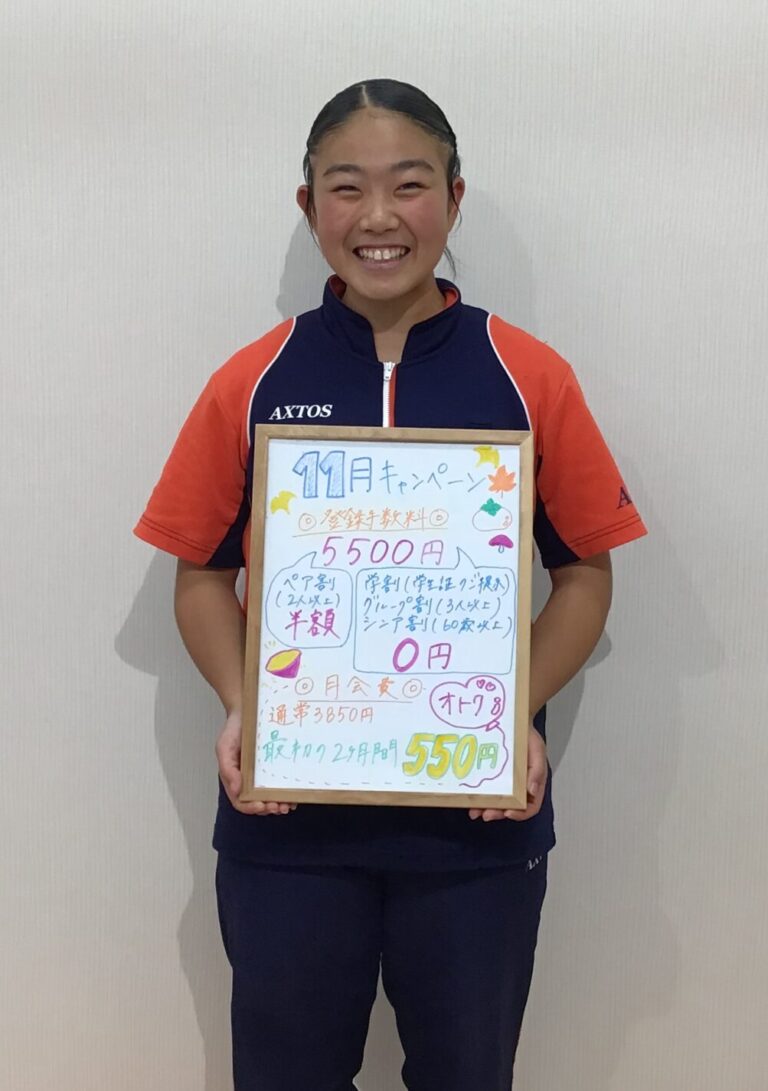 AXTOS
A
11月キャンペーン
◎登録手数料◎
5500円
ペア割
(2人以上)
半額
学割(学生証提示)
グループ割(3人以上)
シニア割(60歳以上)
0円
◎月会費◎
通常3850円
オトク
最初の2ヶ月間
550円
AX